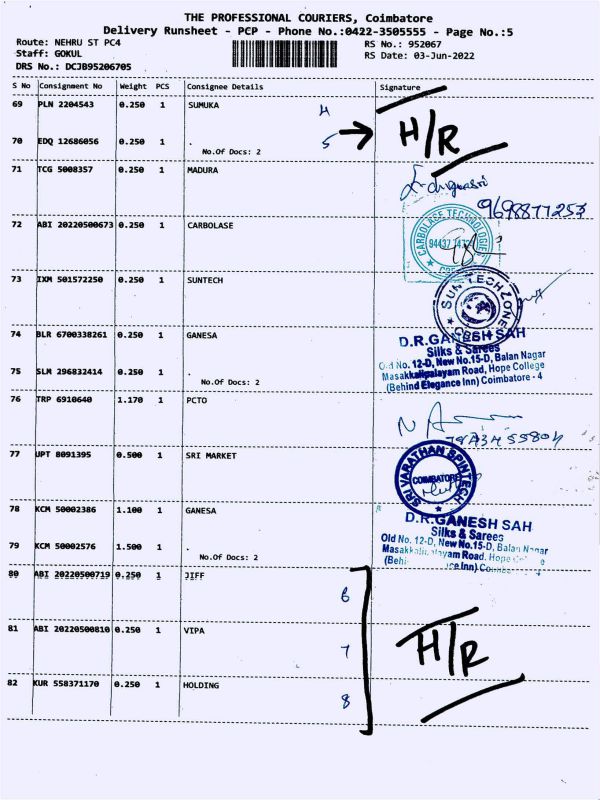 THE PROFESSIONAL COURIERS, Coimbatore
Delivery Runsheet - PCP - Phone No.:0422-3505555 - Page No.:5
Route: NEHRU ST PC4
RS No.: 952067
Staff: GOKUL
RS Date: 03-Jun-2022
DRS No.: DCJB95206705
S No Consignment No Weight PCS Consignee Details Signature
69 PLN 2204543 0.250 1 SUMUKA 4
H/R
70 EDQ 12686056 0.250 1 . 5
No.Of Docs: 2
71 TCG 5008357 0.250 1 MADURA
9698877253
72 ABI 20220500673 0.250 1 CARBOLASE
CARBOLASE TECHNOLOGIE
73 IXM 501572250 0.250 1 SUNTECH
SUN TECH ZONE
74 BLR 6700338261 0.250 1 GANESA
D.R.GANESH SAH
Silks & Sarees
Old No. 12-D, New No.15-D, Balan Nagar
Masakkalipalayam Road, Hope College
(Behind Elegance Inn) Coimbatore - 4
75 SLM 296832414 0.250 1 .
No.Of Docs: 2
76 TRP 6910640 1.170 1 PCTO
77 UPT 8091395 0.500 1 SRI MARKET
SRI VARATHAN SPINTECH
COIMBATORE
78 KCM 50002386 1.100 1 GANESA
D.R.GANESH SAH
Silks & Sarees
Old No. 12-D, New No.15-D, Balan Nagar
79 KCM 50002576 1.500 1 .
No.Of Docs: 2
80 ABI 20220500719 0.250 1 JIFF 6
81 ABI 20220500810 0.250 1 VIPA 7
H/R
82 KUR 558371170 0.250 1 HOLDING 8